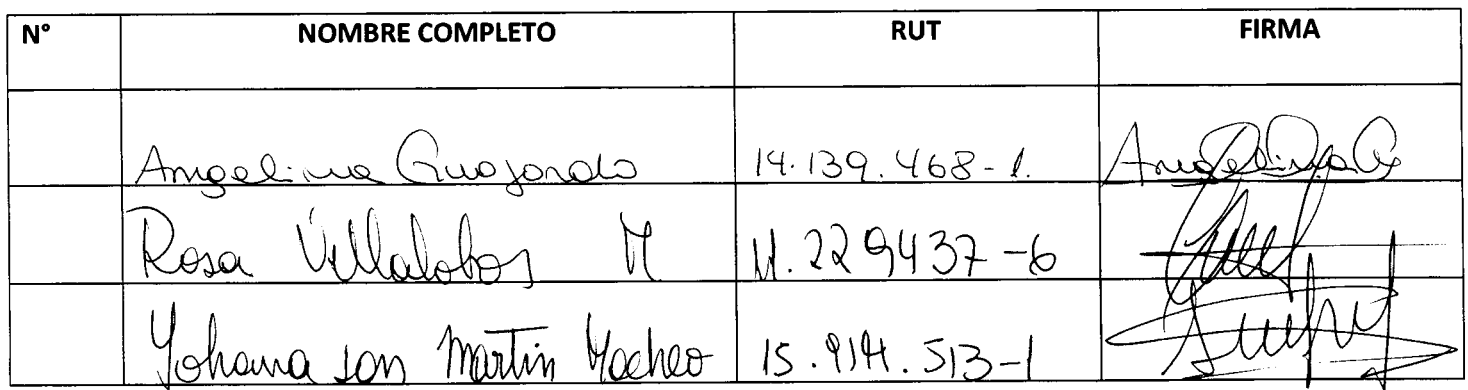 N° NOMBRE COMPLETO RUT FIRMA
Angelina Guajardo 14.139.468-1.
Rosa Villalobos M 11.229437-6
Yohana san Martin 15.914.513-1